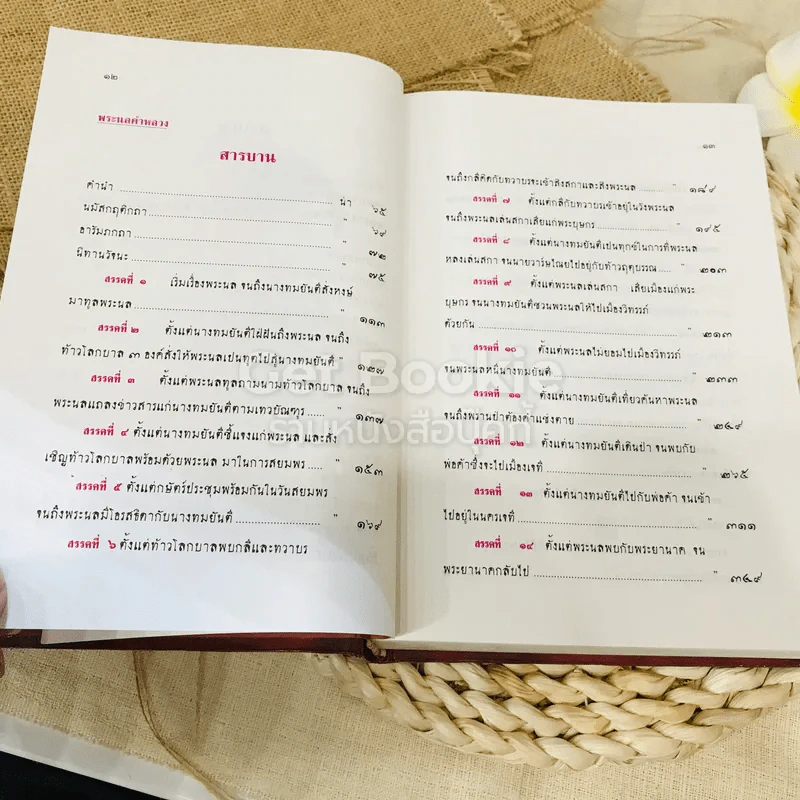 ๑๒
พระนลคำหลวง
สารบาน
คำนำ ........ น่า ๖๕
นมัสกฤติกถา ........ " ๖๙
อารัมภกถา ........ " ๗๒
นิทานวัจนะ ........ " ๗๕
สรรคที่ ๑ เริ่มเรื่องพระนล จนถึงนางทมยันตีสั่งหงษ์
มาทูลพระนล ........ " ๑๑๓
สรรคที่ ๒ ตั้งแต่นางทมยันตีใฝ่ฝันถึงพระนล จนถึง
ท้าวโลกบาล ๓ องค์สั่งให้พระนลเปนทูตไปสู่นางทมยันตี " ๑๒๗
สรรคที่ ๓ ตั้งแต่พระนลทูลถามนามท้าวโลกบาล จนถึง
พระนลแถลงข่าวสารแก่นางทมยันตีตามเทวบัณฑูร ........ " ๑๓๗
สรรคที่ ๔ ตั้งแต่นางทมยันตีชี้แจงแก่พระนล และสั่ง
เชิญท้าวโลกบาลพร้อมด้วยพระนล มาในการสยมพร .... " ๑๕๓
สรรคที่ ๕ ตั้งแต่กษัตร์ประชุมพร้อมกันในวันสยมพร
จนถึงพระนลมีโอรสธิดากับนางทมยันตี ........ " ๑๖๙
สรรคที่ ๖ ตั้งแต่ท้าวโลกบาลพบกลีและทวาบร
๑๓
จนถึงกลีคิดกับทวาบรจะเข้าสิงสกาและสิงพระนล ........ " ๑๘๙
สรรคที่ ๗ ตั้งแต่กลีกับทวาบรเข้าอยู่ในวังพระนล
จนถึงพระนลเล่นสกาเสียแก่พระบุษกร ........ " ๑๙๕
สรรคที่ ๘ ตั้งแต่นางทมยันตีเปนทุกข์ในการที่พระนล
หลงเล่นสกา จนนายวาร์ษไณยไปอยู่กับท้าวฤตุบรรณ ..... " ๒๐๓
สรรคที่ ๙ ตั้งแต่พระนลเล่นสกา เสียเมืองแก่พระ
บุษกร จนนางทมยันตีชวนพระนลให้ไปเมืองวิทรรภ์
ด้วยกัน ........ " ๒๑๓
สรรคที่ ๑๐ ตั้งแต่พระนลไม่ยอมไปเมืองวิทรรภ์
จนพระนลหนีนางทมยันตี ........ " ๒๓๓
สรรคที่ ๑๑ ตั้งแต่นางทมยันตีเที่ยวค้นหาพระนล
จนถึงพรานป่าต้องคำแช่งตาย ........ " ๒๔๙
สรรคที่ ๑๒ ตั้งแต่นางทมยันตีเดินป่า จนพบกับ
พ่อค้าซึ่งจะไปเมืองเจที ........ " ๒๖๕
สรรคที่ ๑๓ ตั้งแต่นางทมยันตีไปกับพ่อค้า จนเข้า
ไปอยู่ในนครเจที ........ " ๓๑๑
สรรคที่ ๑๔ ตั้งแต่พระนลพบกับพระยานาค จน
พระยานาคกลับไป ........ " ๓๔๙
Get Bookie
ร้านหนังสือบุ๊คกี้